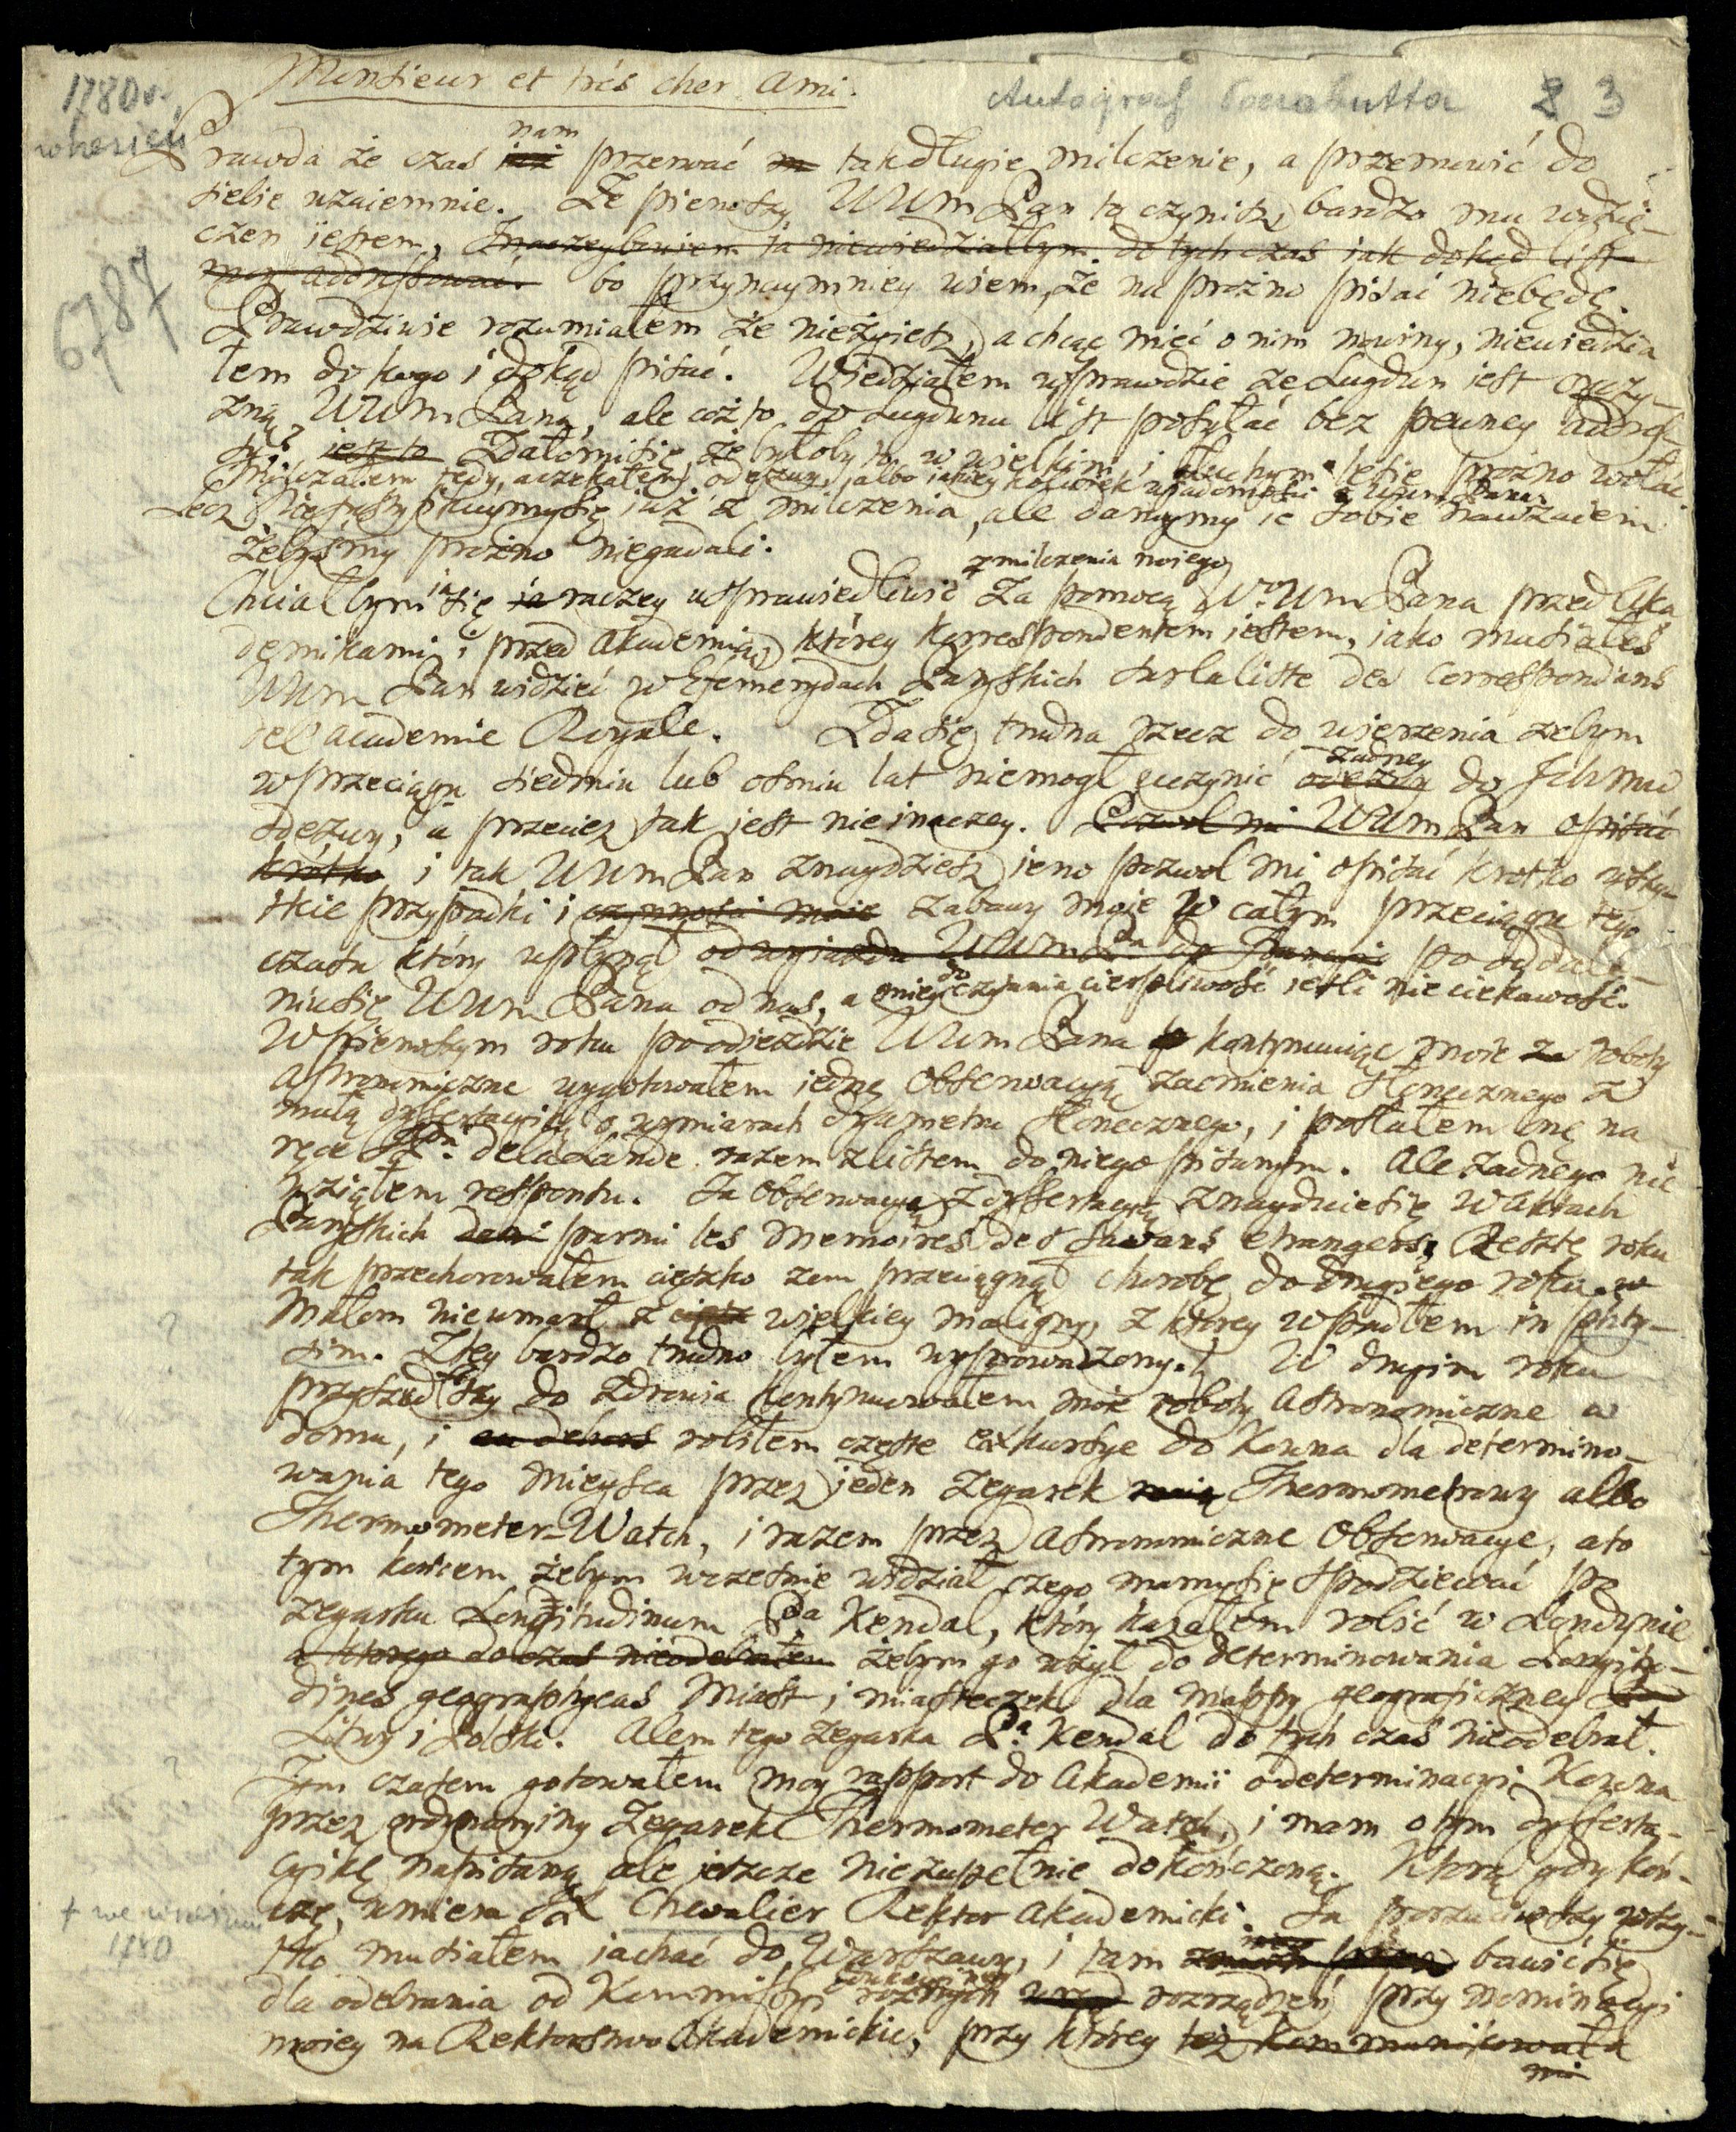 Monsieur et trés cher Ami.
Autograf Poczobutta 2 3
1780 r.
wrzesień
6787
nam
Prawda że czas iuż przerwać tak długie milczenie, a przemowić do
siebie wzaiemnie. Że pierwszy WUmPan to czynisz, bardzo mu wdzię-
czen jestem, Inaczey bowiem ia niewiedziałbym do tych czas jak dokąd list
moy addressować. bo przynaymniey wiem, że na prożno pisać niebędę.
Prawdziwie rozumiałem że nieżyiesz, a chcąc mieć o nim nowiny, niewiedzia
łem do kogo i dokąd pisać. Wiedziałem wprawdzie że Lugdun jest oyczy-
zną WUmPana, ale coż to do Lugdunu list posyłać bez pewney adres-
sy? jest to Zdałomisię, że byłoby to w wielkim i głuchym lesie prożno wołać
Milczałem tedy, a czekałem odezwy, albo iakieykolwiek wiadomości o WUmPanu
Lecz Nie już z milczenia, ale daruymy ie sobie nawzaiem
żebyśmy prożno niegadali.
z milczenia mojego
Chciałbym ia się ia raczey usprawiedliwić za pomocą WUmPana przed Aka
demikami i przed Akademią, ktorey Korrespondentem jestem, jako musiałeś
WUmPan widzieć w Efemerydach Paryskich sur la liste des Correspondans
de l'academie Royale. Zda się trudna rzecz do wierzenia żebym
w przeciągu siedmiu lub ośmiu lat niemogł uczynić odezwy żadney do Ichmciow
odezwy, a przeciez tak jest nieinaczey. Pozwol mi WUmPan opisać
krotko i tak WUmPan znaydziesz, jeno pozwol mi opisać krotko wszy-
stkie przypadki i czynności moie zabawy moje w całym przeciągu tego
czasu ktory upłynął od wyiazdu WUmPa do Francyi po oddale-
niu się WUmPana od nas, a miey do czytania cierpliwość jeśli nie ciekawość.
W pierwszym roku po odjezdzie WUmPana kontynuuiąc moie roboty
Astronomiczne wygotowałem iednę Obserwacyą zaćmienia słonecznego z
małą dyssertacyiką o wymiarach dyametru słonecznego, i posłałem onę na
ręce de la Lande razem z listem do niego pisanym. Ale żadnego nie
wziąłem respontu. Ta Obserwacya z dyssertacyą znayduie się w Aktach
Paryskich parmi les Memoires des Savans etrangers, Resztę roku
tak przechorowałem ciężko żem przeciągnął chorobę do drugiego roku.
Małom nie umarł z wielkiey maligny, z ktorey wpadłem in phty-
sim. Z tey bardzo trudno byłem wyprowadzony. W drugim roku
przyszedłszy do zdrowia kontynuowałem moie roboty Astronomiczne w
domu, i en dehors robiłem częste exkursye do Kowna dla determino-
wania tego mieysca przez jeden zegarek Thermometrowy albo
Thermometer-Watch, i razem przez Astronomiczne Obserwacye, a to
tym końcem żebym wcześnie widział czego mamy się spodziewać po
zegarku Longitudinum Pa Kendal, ktory kazałem robić w Londynie
a ktorego dotychczas nieodebrałem żebym go użył do determinowania Longitu-
dines geographycas Miast i miasteczek dla mappy geograficzney
Litwy i Polski. Alem tego zegarka Pa Kendal do tych czas nieodebrał.
Tym czasem gotowałem moy rapport do Akademii o determinacyi Kowna
przez ordynaryiny zegarek Thermometer Watch, i mam o tym dysserta-
cyikę napisaną ale jeszcze niezupełnie dokończoną. Ktorą gdy koń-
czę, umiera JX Chevalier Rektor Akademicki. Ja porzuciwszy wszy-
+ we wrześniu
1780
stko musiałem jachać do Warszawy, i tam bawić się
dla odebrania od Kommissyi roznych rozrządzeń przy nominacyi
moiey na Rektorstwo Akademickie, przy ktorey też kommunikowała
mi